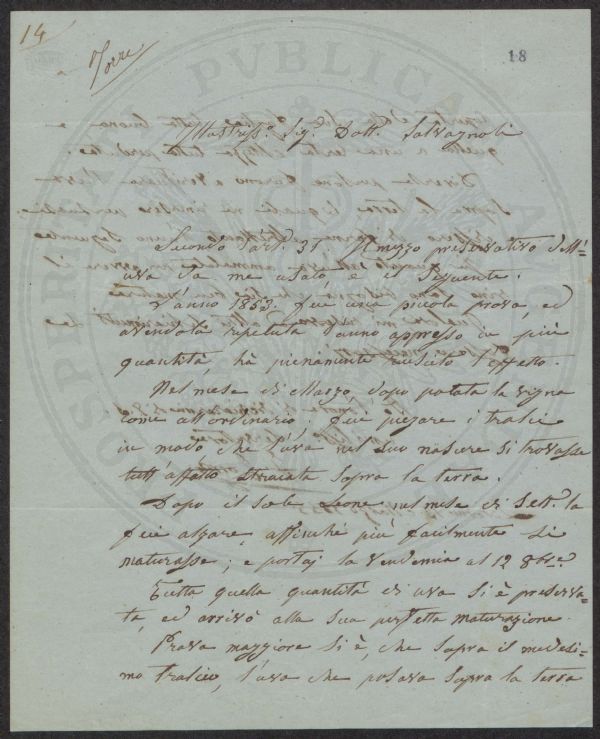 14
Torre
18
Illustriss.º Sig.r Dott. Salvagnoli
Secondo l'art. 31. Il mezzo preservativo dell'
uva da me usato è il seguente.
L'anno 1853. feci una piccola prova, ed
avendola ripetuta l'anno appresso in più
quantità, hà pienamente riuscito l'effetto.
Nel mese di Marzo, dopo potata la vigna
come all'ordinario, feci piegare i tralci
in modo che l'uva nel suo nascere si trovasse
tutt'affatto straiata sopra la terra.
Dopo il sole Leone, nel mese di Sett. la
feci alzare, affinché più facilmente si
maturasse, e portai la vendemia al 12 8bre.
Tutta quella quantità di uva si è preserva-
ta, ed arrivò alla sua perfetta maturazione.
Prova maggiore si è, che sopra il medesi-
mo tralcio, l'uva che posava sopra la terra